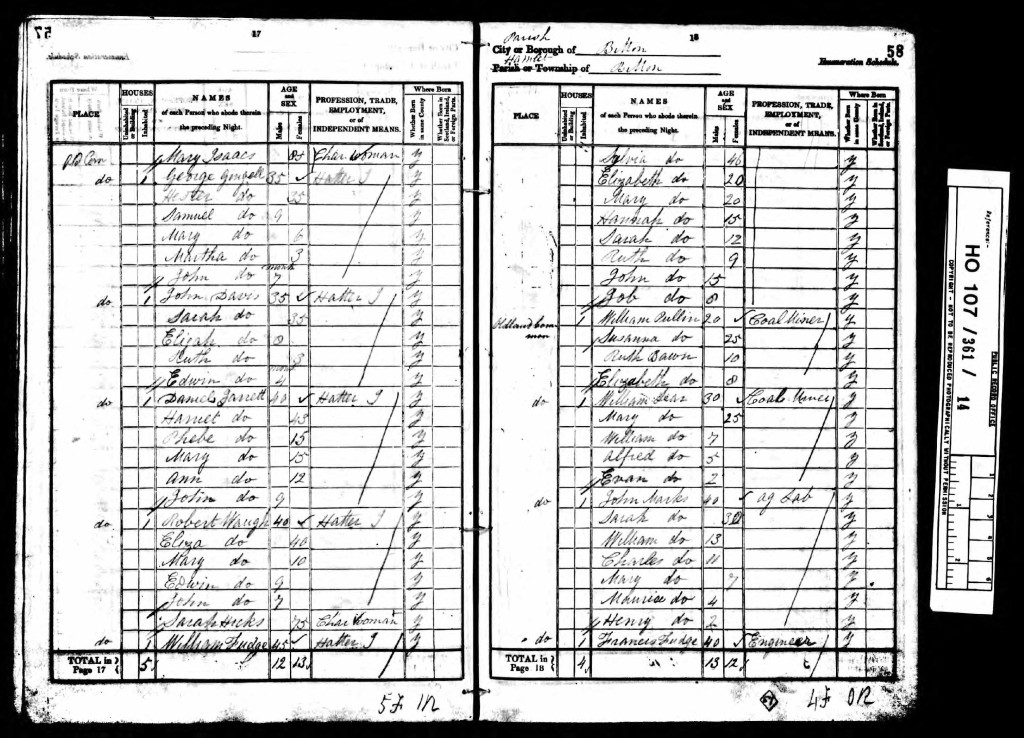 57
17
PLACE
HOUSES
Uninhabited or Building
Inhabited
NAMES
of each Person who abode therein
the preceding Night.
AGE
and
SEX
Males
Females
PROFESSION, TRADE,
EMPLOYMENT,
or of
INDEPENDENT MEANS.
Where Born
Whether Born in same County
Whether Born in Scotland, Ireland, or Foreign Parts.
Mary Isaacs 85 Char Woman y
do 1 George 35 Hatter J y
Hester do 35 y
Samuel do 9 y
Mary do 6 y
Martha do 3 y
John do 7 y
do 1 John Davis 35 Hatter J y
Sarah do 35 y
Elijah do 8 y
Ruth do 3 y
Edwin do 4 y
do 1 Daniel Jarrett 40 Hatter J y
Harriet do 43 y
Phebe do 15 y
Mary do 15 y
Ann do 12 y
John do 9 y
do 1 Robert Waugh 40 Hatter J y
Eliza do 40 y
Mary do 10 y
Edwin do 9 y
John do 7 y
Sarah Hicks 75 Char Woman y
do 1 William Fudge 45 Hatter J y
TOTAL in Page 17 5 12 13
5F 1R
18
58
Parish
City or Borough of Bitton
Hamlet
Parish or Township of Bitton
Enumeration Schedule.
PLACE
HOUSES
Uninhabited or Building
Inhabited
NAMES
of each Person who abode therein
the preceding Night.
AGE
and
SEX
Males
Females
PROFESSION, TRADE,
EMPLOYMENT,
or of
INDEPENDENT MEANS.
Where Born
Whether Born in same County
Whether Born in Scotland, Ireland, or Foreign Parts.
Sylvia do 46 y
Elizabeth do 20 y
Mary do 20 y
Hannah do 15 y
Sarah do 12 y
Ruth do 9 y
John do 15 y
Job do 8 y
Oldland common 1 William 20 Coal Miner y
Susanna do 25 y
Ruth Dawn 10 y
Elizabeth do 8 y
do 1 William 30 Coal Miner y
Mary do 25 y
William do 7 y
Alfred do 5 y
Evan do 2 y
do 1 John Marks 40 Ag Lab y
Sarah do 30 y
William do 13 y
Charles do 11 y
Mary do 7 y
Maurice do 4 y
Henry do 2 y
do 1 Francis Fudge 40 Engineer y
TOTAL in Page 18 4 13 12
4F 0R
Reference:-
HO 107 / 361 / 14
PUBLIC RECORD OFFICE
COPYRIGHT - NOT TO BE REPRODUCED PHOTOGRAPHICALLY WITHOUT PERMISSION